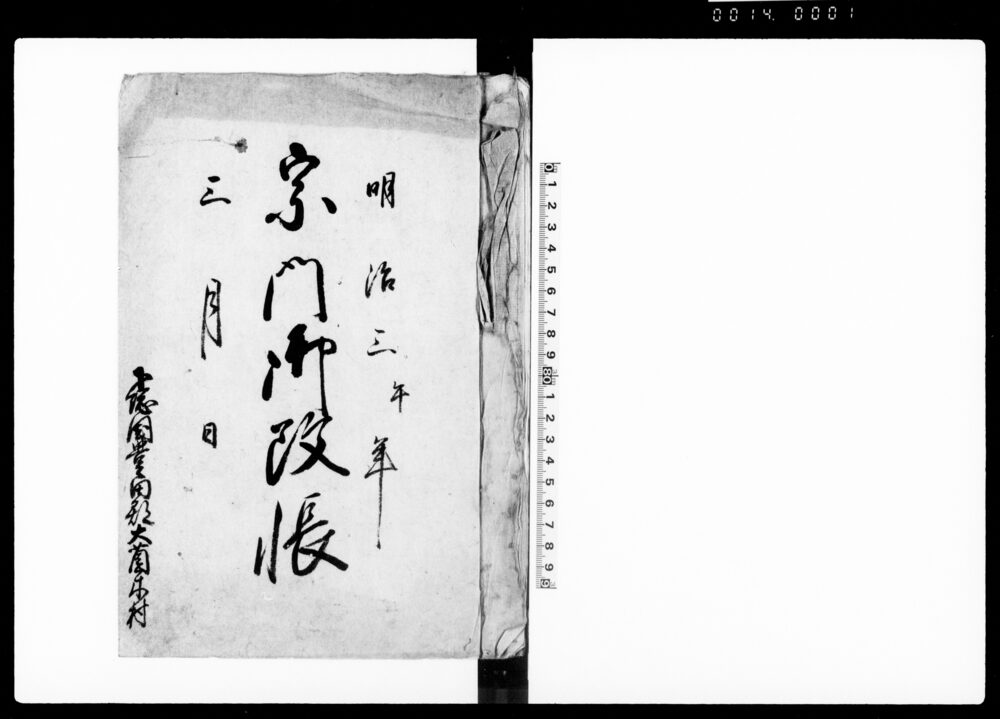 0014. 0001
明治三午年
宗門御改帳
三月日
下總国豊田郡大薗木村
0 1 2 3 4 5 6 7 8 9
1 2 3 4 5 6 7 8 9